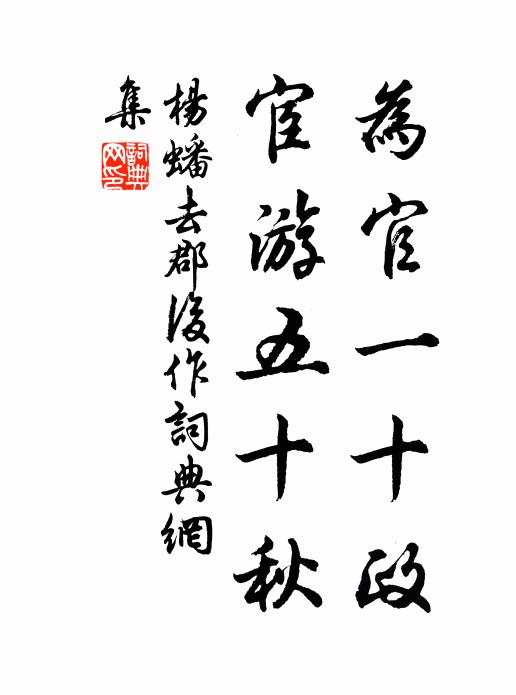 為官一十政
宦游五十秋
楊蟠去郡後作詞典網
集
詞典
网印